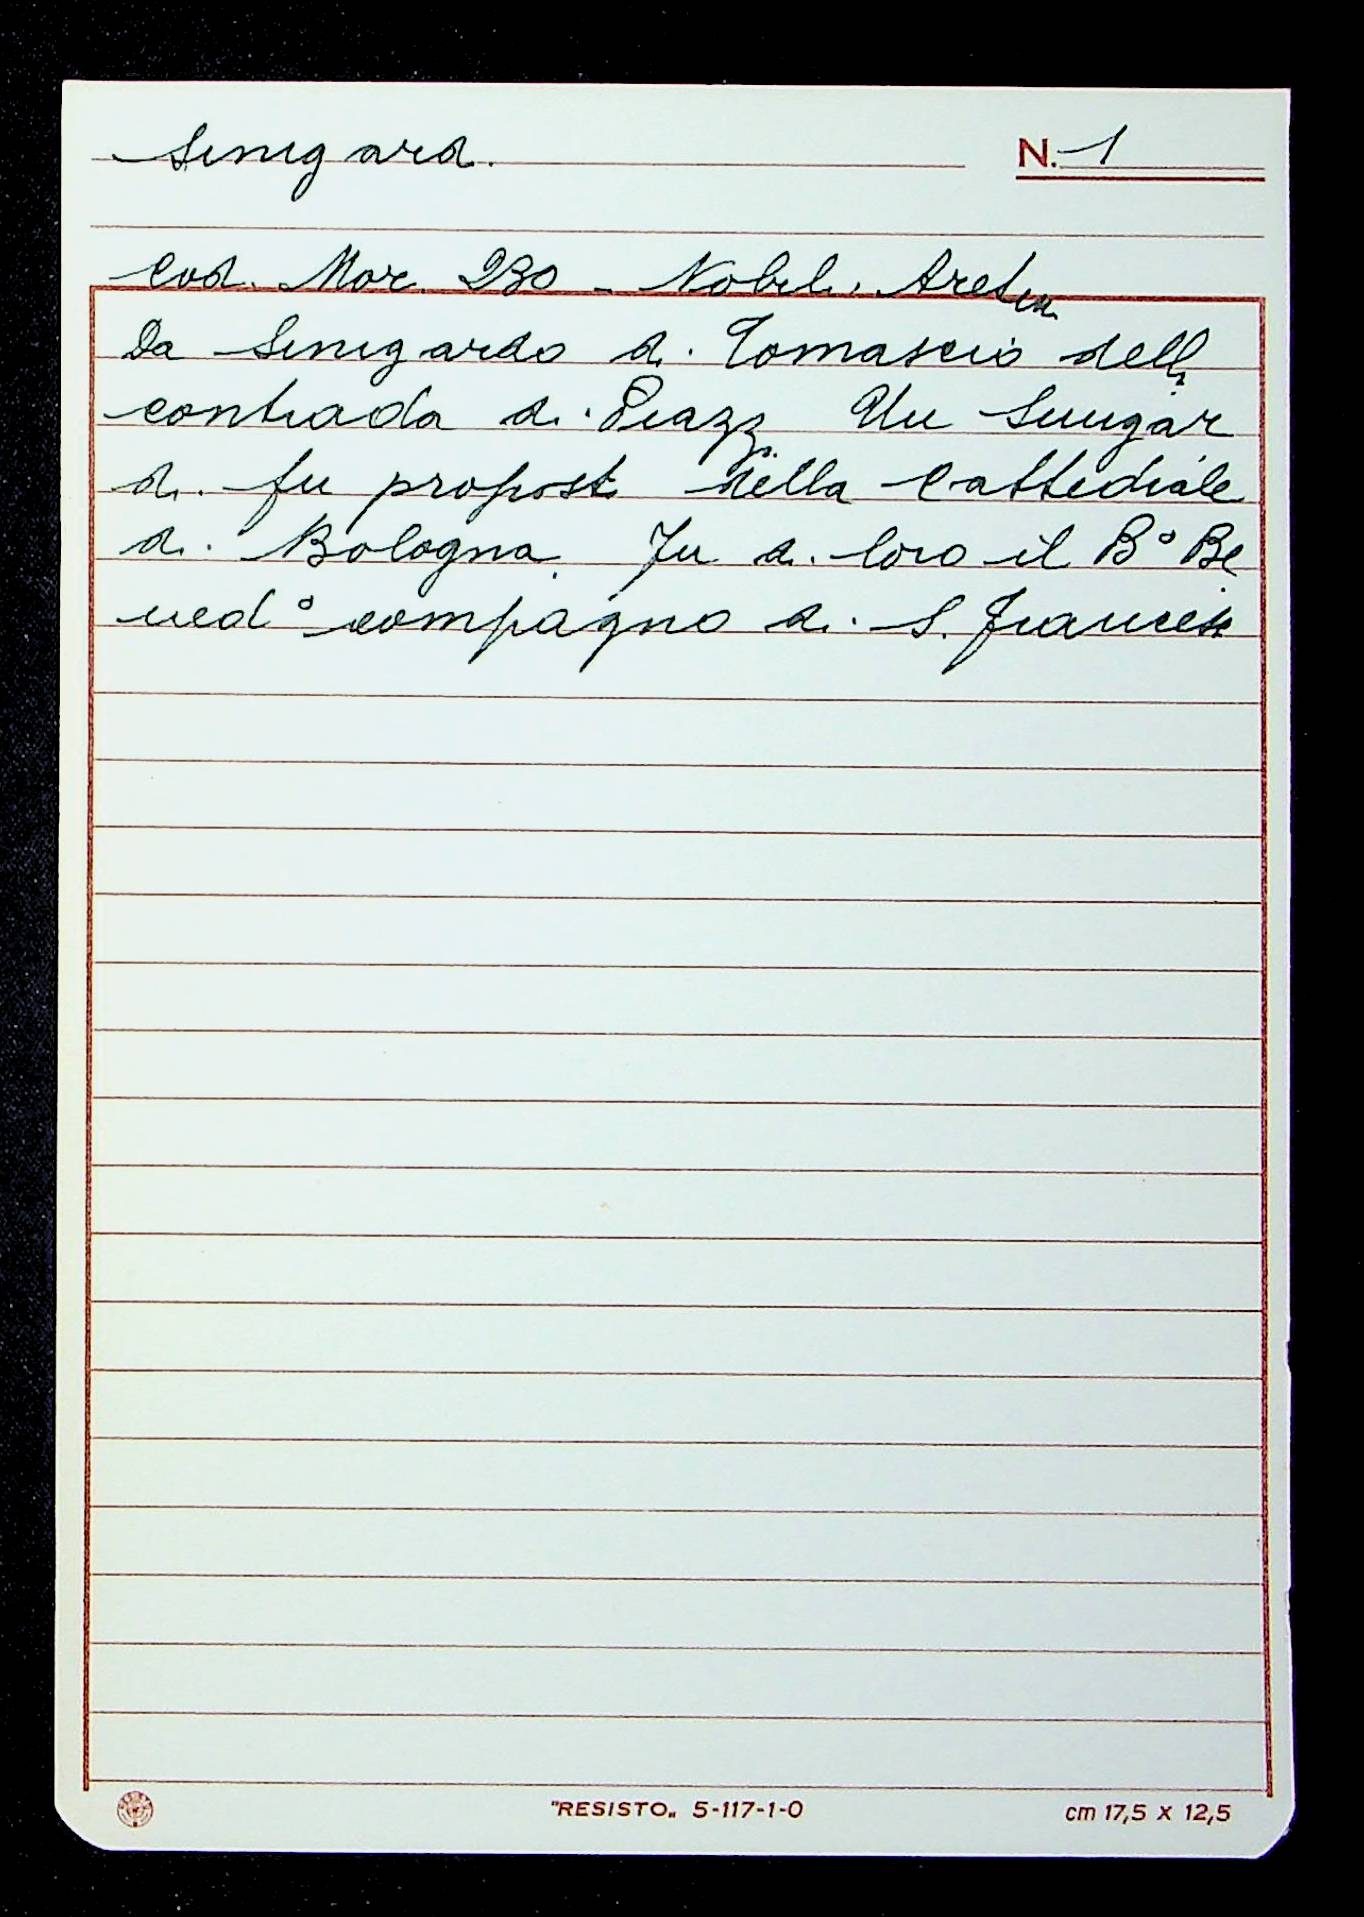 Sinigard. N. 1
Cod. Mor. 230 - Nobil. Aretin
Da Sinigardo di Tomascio della
contrada di Piazza Un Sinigar
di fu proposto della Cattedrale
di Bologna. Fu di loro il B° Be
ned° compagno di S. Francesco
"RESISTO„ 5-117-1-0 cm 17,5 x 12,5